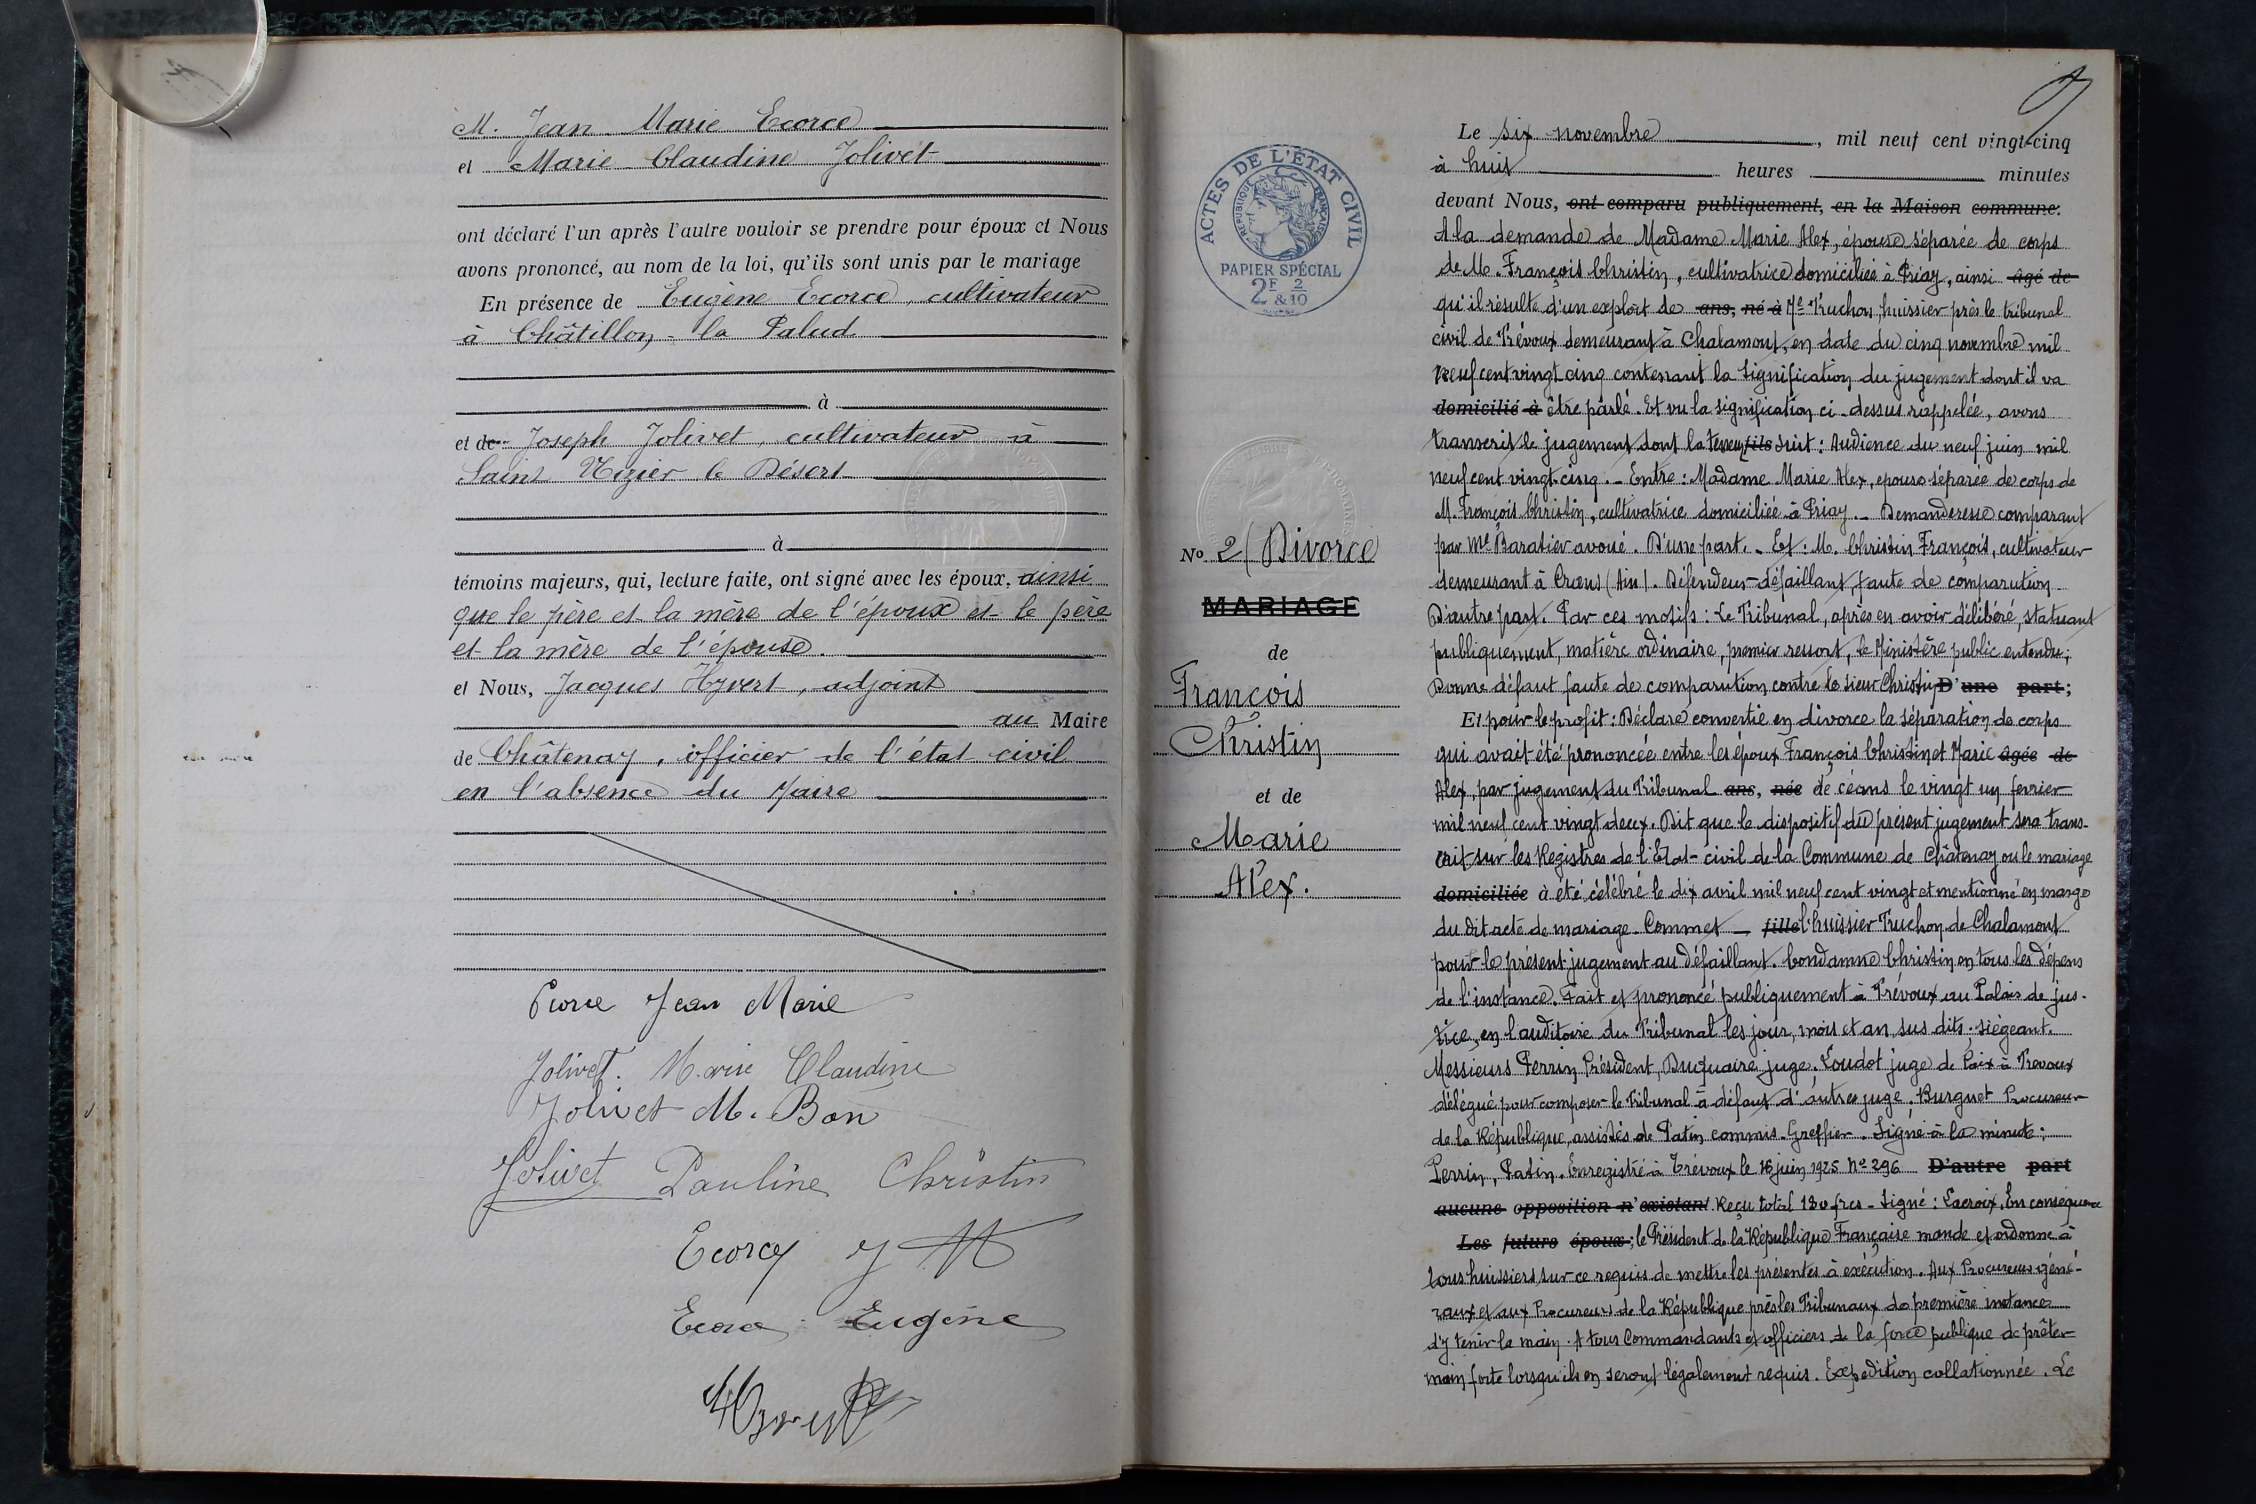 M. Jean Marie Ecorce
et Marie Claudine Jolivet
ont déclaré l'un après l'autre vouloir se prendre pour époux et Nous
avons prononcé, au nom de la loi, qu'ils sont unis par le mariage
En présence de Eugène Ecorce, cultivateur
à Châtillon-la Palud
à
et de Joseph Jolivet, cultivateur à
Saint Nizier le Désert
à
témoins majeurs, qui, lecture faite, ont signé avec les époux, ainsi
que le père et la mère de l'époux et le père
et la mère de l'épouse.
et Nous, Jacques Hyvert, adjoint
au Maire
de Châtenay, officier de l'état civil
en l'absence du Maire
Ecorce Jean Marie
Jolivet. Marie Claudine
Jolivet M. Bon
Jolivet Pauline Christin
Ecorce J M
Ecorce Eugène
Hyvert
ACTES DE L'ÉTAT CIVIL
RÉPUBLIQUE FRANÇAISE
PAPIER SPÉCIAL
2F 2
&10
No 2 (Divorce
MARIAGE
de
François
Christin
et de
Marie
Alex.
Le six novembre, mil neuf cent vingt-cinq
à huit heures minutes
devant Nous, ont comparu publiquement, en la Maison commune.
A la demande de Madame Marie Alex, épouse séparée de corps
de M. François Christin, cultivatrice domiciliée à Priay, ainsi âgé de
qu'il résulte d'un exploit de ans, né à Me Truchon, huissier près le tribunal
civil de Trévoux demeurant à Chalamont, en date du cinq novembre mil
neuf cent vingt cinq contenant la signification du jugement dont il va
domicilié à être parlé. Et vu la signification ci-dessus rappelée, avons
transcrit le jugement dont la teneur fils suit: Audience du neuf juin mil
neuf cent vingt-cinq. - Entre: Madame Marie Alex, épouse séparée de corps de
M. François Christin, cultivatrice domiciliée à Priay. - Demanderesse comparant
par Me Baratier avoué. D'une part. - Et: M. Christin François, cultivateur
demeurant à Crans (Ain). Défendeur-défaillant, faute de comparution
D'autre part. Par ces motifs: Le Tribunal, après en avoir délibéré, statuant
publiquement, matière ordinaire, premier ressort, le Ministère public entendu;
Donne défaut faute de comparution contre le sieur Christin D'une part;
Et pour le profit: Déclare convertie en divorce la séparation de corps
qui avait été prononcée entre les époux François Christin et Marie âgée de
Alex, par jugement du Tribunal ans, née de céans le vingt un fevrier
mil neuf cent vingt deux. Dit que le dispositif du présent jugement sera trans-
crit sur les Registres de l'Etat-civil de la Commune de Châtenay ou le mariage
domiciliée à été célébré le dix avril mil neuf cent vingt et mentionné en marge
du dit acte de mariage. Commet - fille l'huissier Truchon de Chalamont
pour le présent jugement au défaillant. Condamne Christin en tous les dépens
de l'instance. Fait et prononcé publiquement à Trévoux au Palais de jus-
tice, en l'auditoire du Tribunal les jour, mois et an sus dits. siègeant.
Messieurs Perrin Président, Duquaire juge. Loudot juge de Paix à Trevoux
délégué pour composer le Tribunal à défaut d'autres juge. Burguet Procureur
de la République, assistés de Patin commis-Greffier. Signé à la minute:
Perrin, Patin. Enregistré à Trévoux le 16 juin 1925 No 296 D'autre part
aucune opposition n'existant. Reçu total 180 frcs - Signé: Lacroix. En conséquence
Les futurs époux; le Président de la République Française mande et ordonne à
tous huissiers sur ce requis de mettre les présentes à exécution. Aux Procureurs géné-
raux et aux Procureurs de la République près les Tribunaux de première instance
d'y tenir la main. A tous Commandants et officiers de la force publique de prêter
main forte lorsqu'ils en seront légalement requis. Expedition collationnée. Le